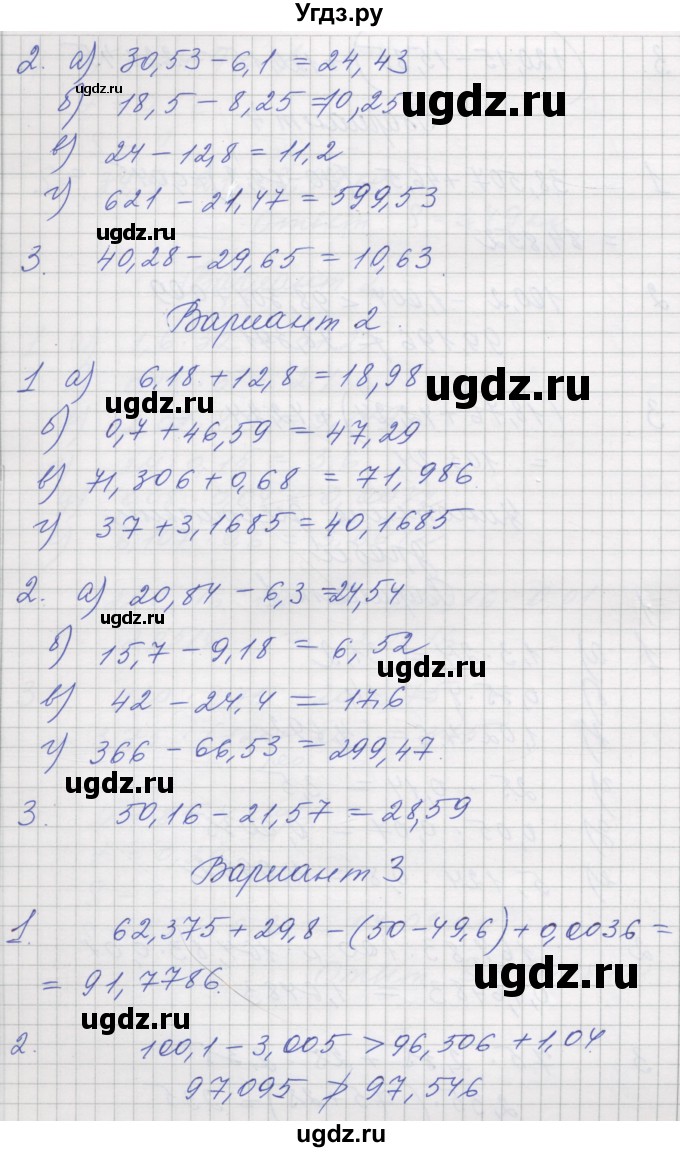 Угдз.ру
2. а) 30,53 - 6,1 = 24,43
ugdz.ru
б) 18,5 - 8,25 = 10,25
ugdz.ru
в) 24 - 12,8 = 11,2
г) 621 - 21,47 = 599,53
ugdz.ru
3. 40,28 - 29,65 = 10,63
Вариант 2
1 а) 6,18 + 12,8 = 18,98
ugdz.ru
ugdz.ru
б) 0,7 + 46,59 = 47,29
в) 71,306 + 0,68 = 71,986
г) 37 + 3,1685 = 40,1685
2. а) 20,84 - 6,3 = 24,54
ugdz.ru
б) 15,7 - 9,18 = 6,52
ugdz.ru
в) 42 - 24,4 = 17,6
г) 366 - 66,53 = 299,47
ugdz.ru
3. 50,16 - 21,57 = 28,59
Вариант 3
1. 62,375 + 29,8 - (50 - 49,6) + 0,0036 =
ugdz.ru
= 91,7786.
ugdz.ru
2. 100,1 - 3,005 > 96,506 + 1,04.
97,095 ≯ 97,546
ugdz.ru